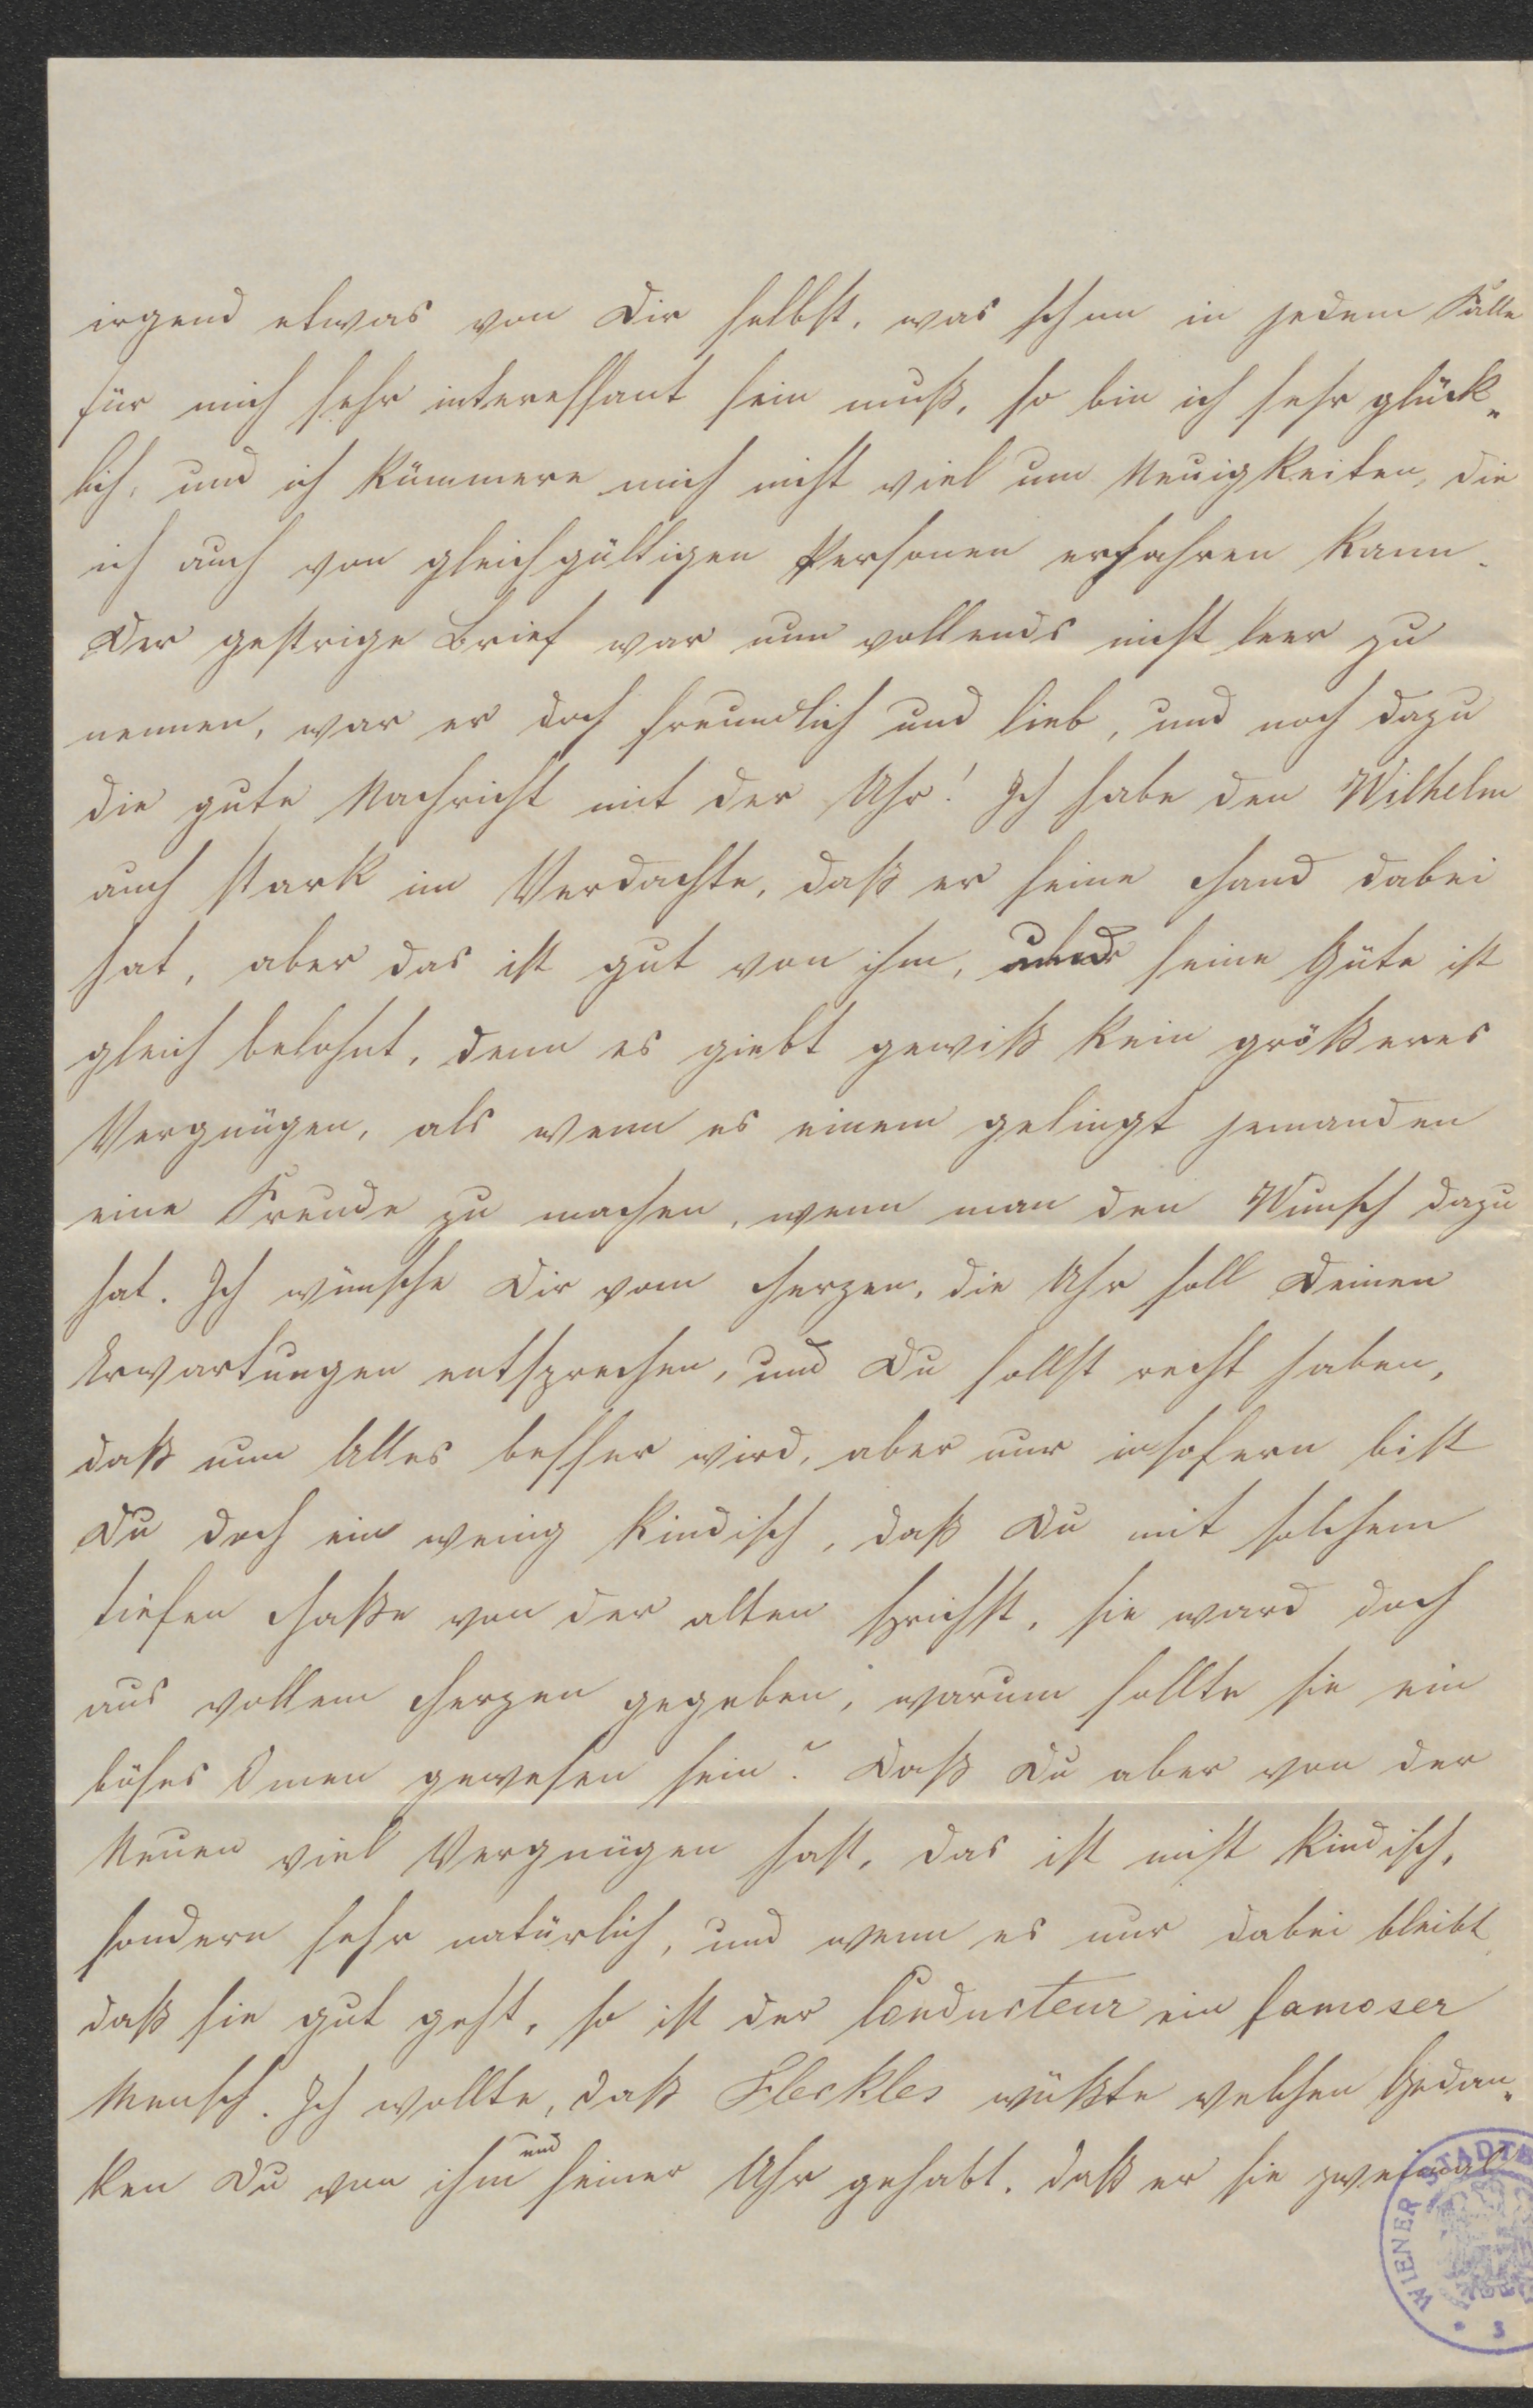 irgend etwas von Dir selbst, was schon in jedem Falle
für mich sehr interessant sein muß, so bin ich sehr glück„
lich, und ich kümmere mich nicht viel um Neuigkeiten, die
ich auch von gleichgültigen Personen erfahren kann.
Der gestrige Brief war nun vollends nicht leer zu
nennen, war er doch freundlich und lieb, und noch dazu
die gute Nachricht mit der Uhr! Ich habe den Wilhelm
auch stark im Verdachte, daß er seine Hand dabei
hat, aber das ist gut von ihm, und seine Güte ist
gleich belohnt, denn es giebt gewiß kein größeres
Vergnügen, als wenn es einem gelingt jemanden
eine Freude zu machen, wenn man den Wunsch dazu
hat. Ich wünsche Dir vom Herzen, die Uhr soll Deinen
Erwartungen entsprechen, und Du sollst recht haben,
daß nun Alles besser wird, aber nur insofern bist
Du doch ein wenig kindisch, daß Du mit solchem
tiefen Haße von der alten sprichst, sie ward doch
aus vollem Herzen gegeben, warum sollte sie ein
böses Omen gewesen sein? Daß Du aber von der
Neuen viel Vergnügen hast, das ist nicht kindisch,
sondern sehr natürlich, und wenn es nur dabei bleibt,
daß sie gut geht, so ist der Conducteur ein famoser
Mensch. Ich wollte, daß Fleckles wüßte welchen Gedan„
ken Du von ihm und seiner Uhr gehabt. daß er sie zweimal
WIENER STADTB